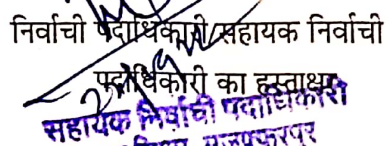 निर्वाची पदाधिकारी/सहायक निर्वाची
पदाधिकारी का हस्ताक्षर
सहायक निर्वाची पदाधिकारी
मुजफ्फरपुर